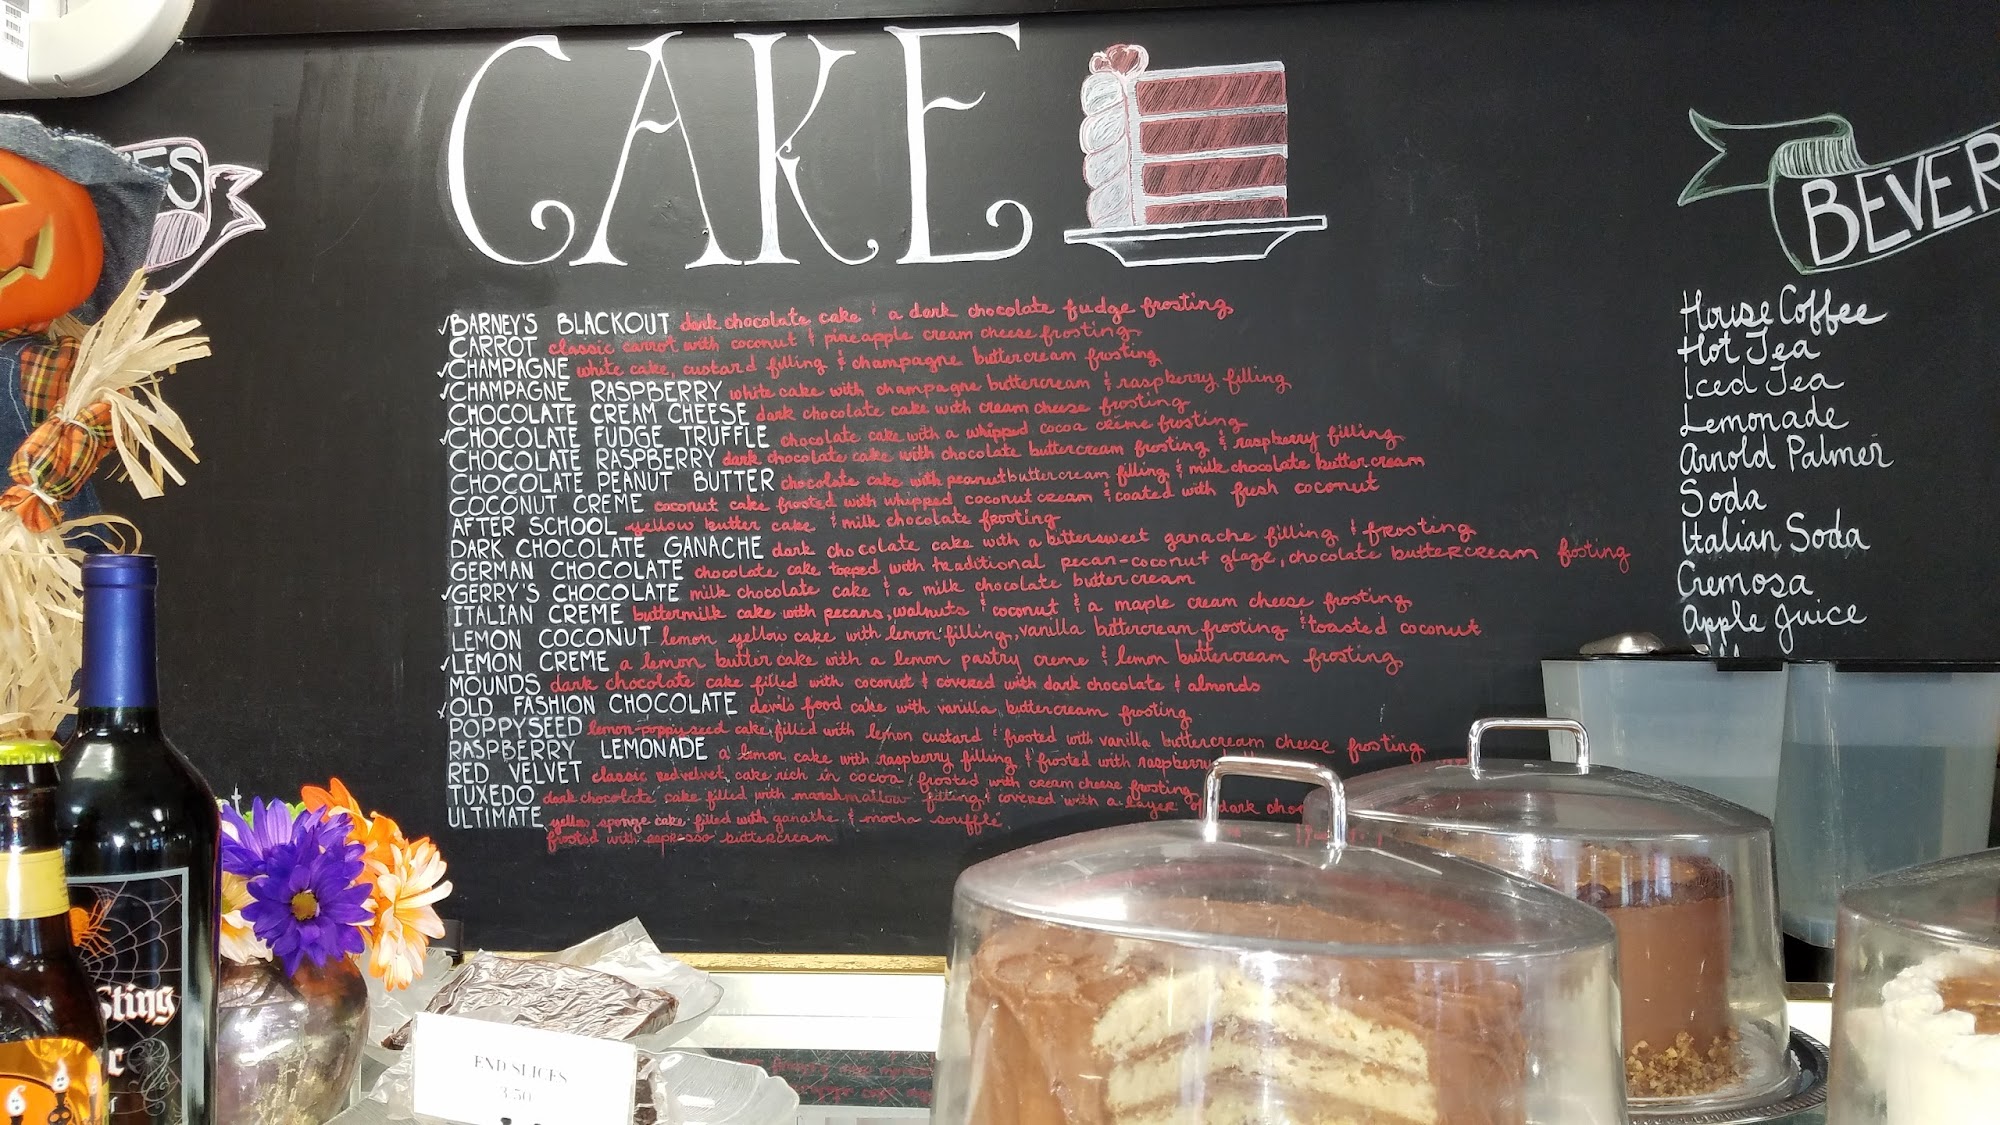 CAKE
BARNEY'S BLACKOUT dark chocolate cake & a dark chocolate fudge frosting
CARROT classic carrot with coconut & pineapple cream cheese frosting
CHAMPAGNE white cake, custard filling & champagne buttercream frosting
CHAMPAGNE RASPBERRY white cake with champagne buttercream & raspberry filling
CHOCOLATE CREAM CHEESE dark chocolate cake with cream cheese frosting
CHOCOLATE FUDGE TRUFFLE chocolate cake with a whipped cocoa crème frosting
CHOCOLATE RASPBERRY dark chocolate cake with chocolate buttercream frosting & raspberry filling
CHOCOLATE PEANUT BUTTER chocolate cake with peanutbuttercream filling & milk chocolate buttercream
COCONUT CREME coconut cake frosted with whipped coconut cream & coated with fresh coconut
AFTER SCHOOL yellow butter cake & milk chocolate frosting
DARK CHOCOLATE GANACHE dark chocolate cake with a bittersweet ganache filling & frosting
GERMAN CHOCOLATE chocolate cake topped with traditional pecan-coconut glaze, chocolate buttercream frosting
GERRY'S CHOCOLATE milk chocolate cake & a milk chocolate buttercream
ITALIAN CREME buttermilk cake with pecans, walnuts & coconut & a maple cream cheese frosting
LEMON COCONUT lemon yellow cake with lemon filling, vanilla buttercream frosting & toasted coconut
LEMON CREME a lemon butter cake with a lemon pastry creme & lemon buttercream frosting
MOUNDS dark chocolate cake filled with coconut & covered with dark chocolate & almonds
OLD FASHION CHOCOLATE devil's food cake with vanilla buttercream frosting
POPPYSEED lemon-poppyseed cake filled with lemon custard & frosted with vanilla buttercream cheese frosting
RASPBERRY LEMONADE a lemon cake with raspberry filling & frosted with raspberry
RED VELVET classic red velvet, cake rich in cocoa & frosted with cream cheese frosting
TUXEDO dark chocolate cake filled with marshmallow filling & covered with a layer of dark
ULTIMATE yellow sponge cake filled with ganache & mocha soufflé
frosted with espresso buttercream
BEVER
House Coffee
Hot Tea
Iced Tea
Lemonade
Arnold Palmer
Soda
Italian Soda
Cremosa
Apple Juice
END SLICES
3.50